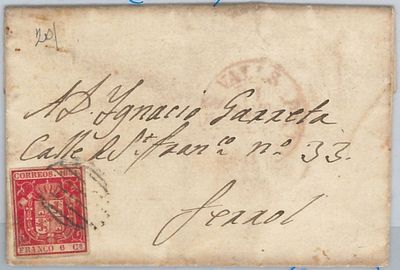 201
VALLS
A D. Ignacio Garreta
Calle de Sn. Franco no. 33.
Ferrol
CORREOS.
FRANCO 6 Cs